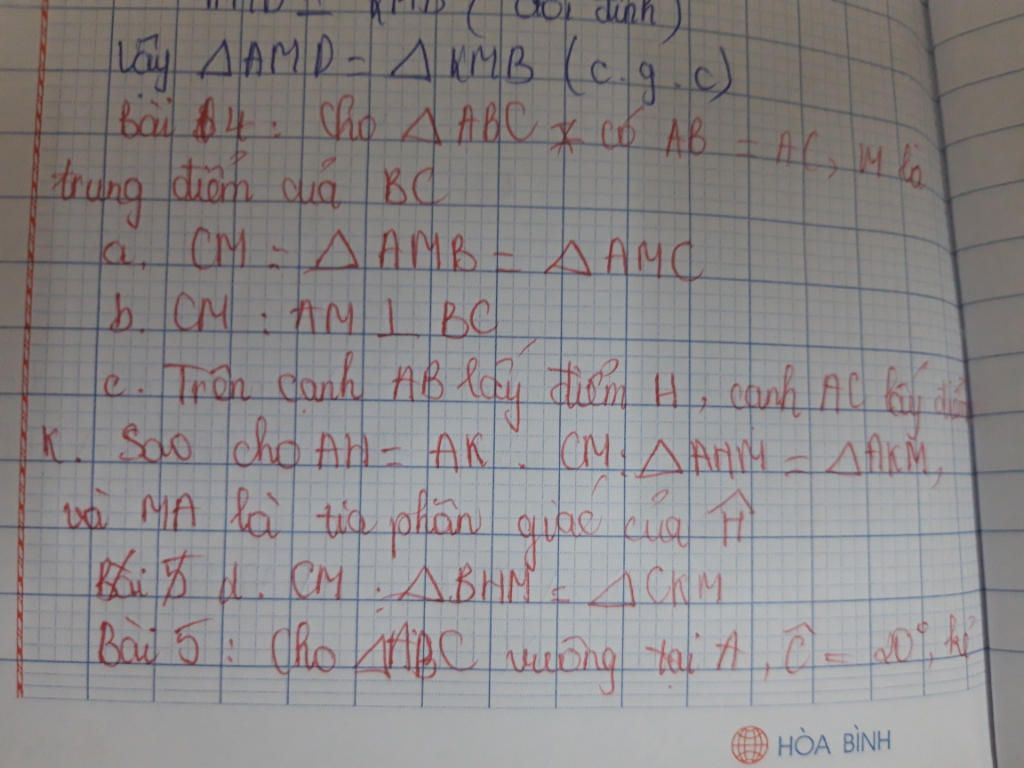 KMB ( đối đỉnh )
Vậy △AMD = △KMB (c.g.c)
Bài 4 : Cho △ABC có AB = AC, M là
trung điểm của BC
a. CM : △AMB = △AMC
b. CM : AM ⊥ BC
c. Trên cạnh AB lấy điểm H, cạnh AC lấy điểm
K. Sao cho AH = AK. CM : △AHM = △AKM,
và MA là tia phân giác của Ĥ
d. CM : △BHM = △CKM
Bài 5 : Cho △ABC vuông tại A, Ĉ = 20°, kẻ
HÒA BÌNH